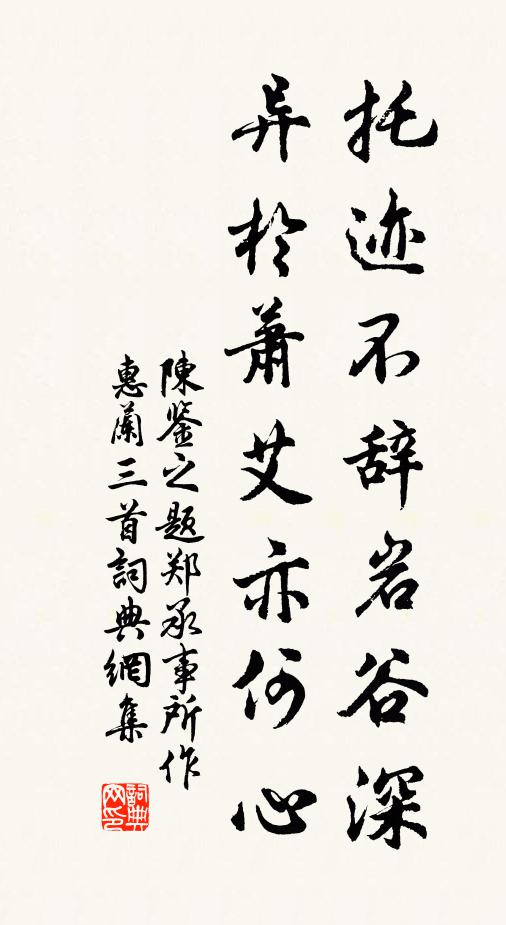 托迹不辞岩谷深
异於萧艾亦何心
陳鉴之题郑承事所作
惠蘭三首詞典網集
詞典网印